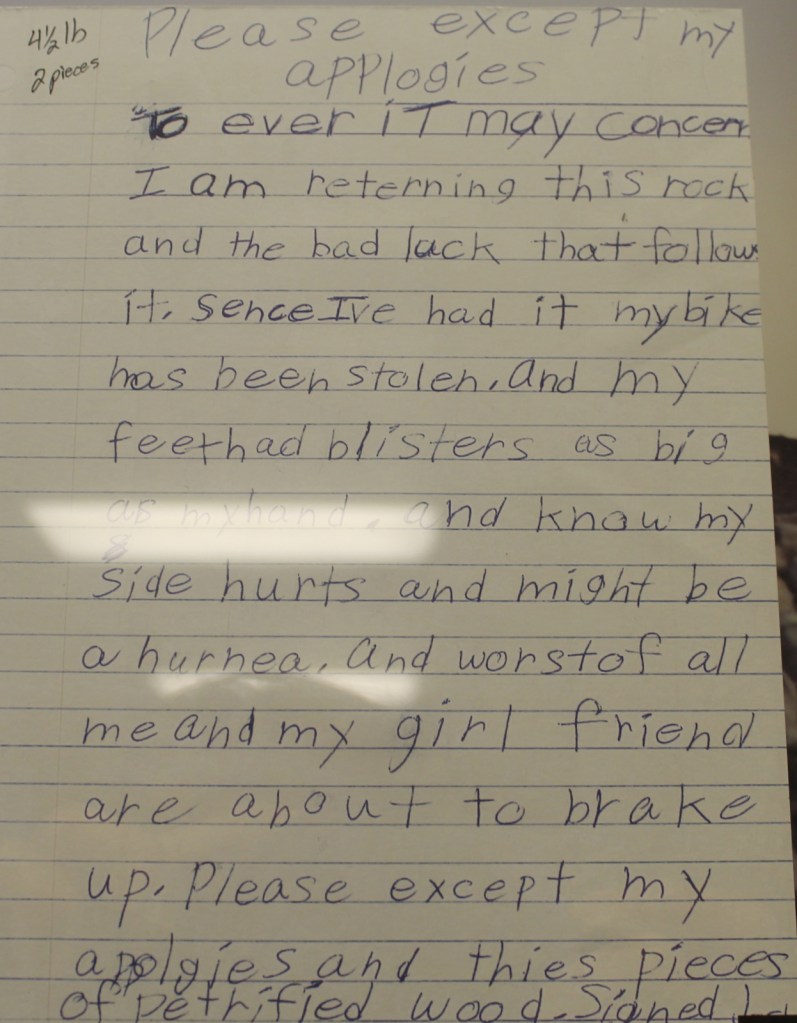 4½ lb
2 pieces
Please except my
applogies
To ever iT may concern
I am reterning this rock
and the bad luck that follows
it. Sence I've had it my bike
has been stolen. And my
feet had blisters as big
as my hand. and know my
side hurts and might be
a hurnea. And worst of all
me and my girl friend
are about to brake
up. Please except my
apolgies and thies pieces
of petrified wood. Signed